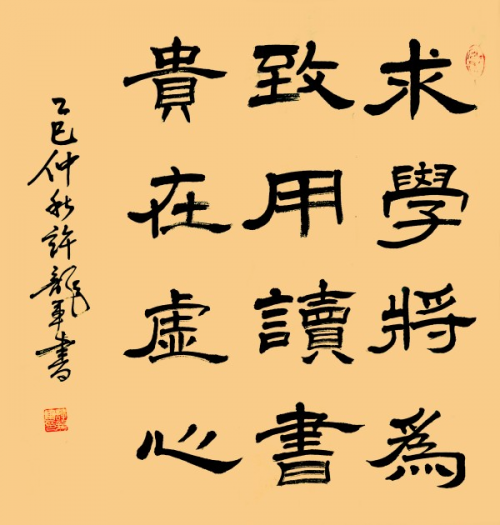 求學將為
致用讀書
貴在虛心
乙巳仲秋許龍軍書